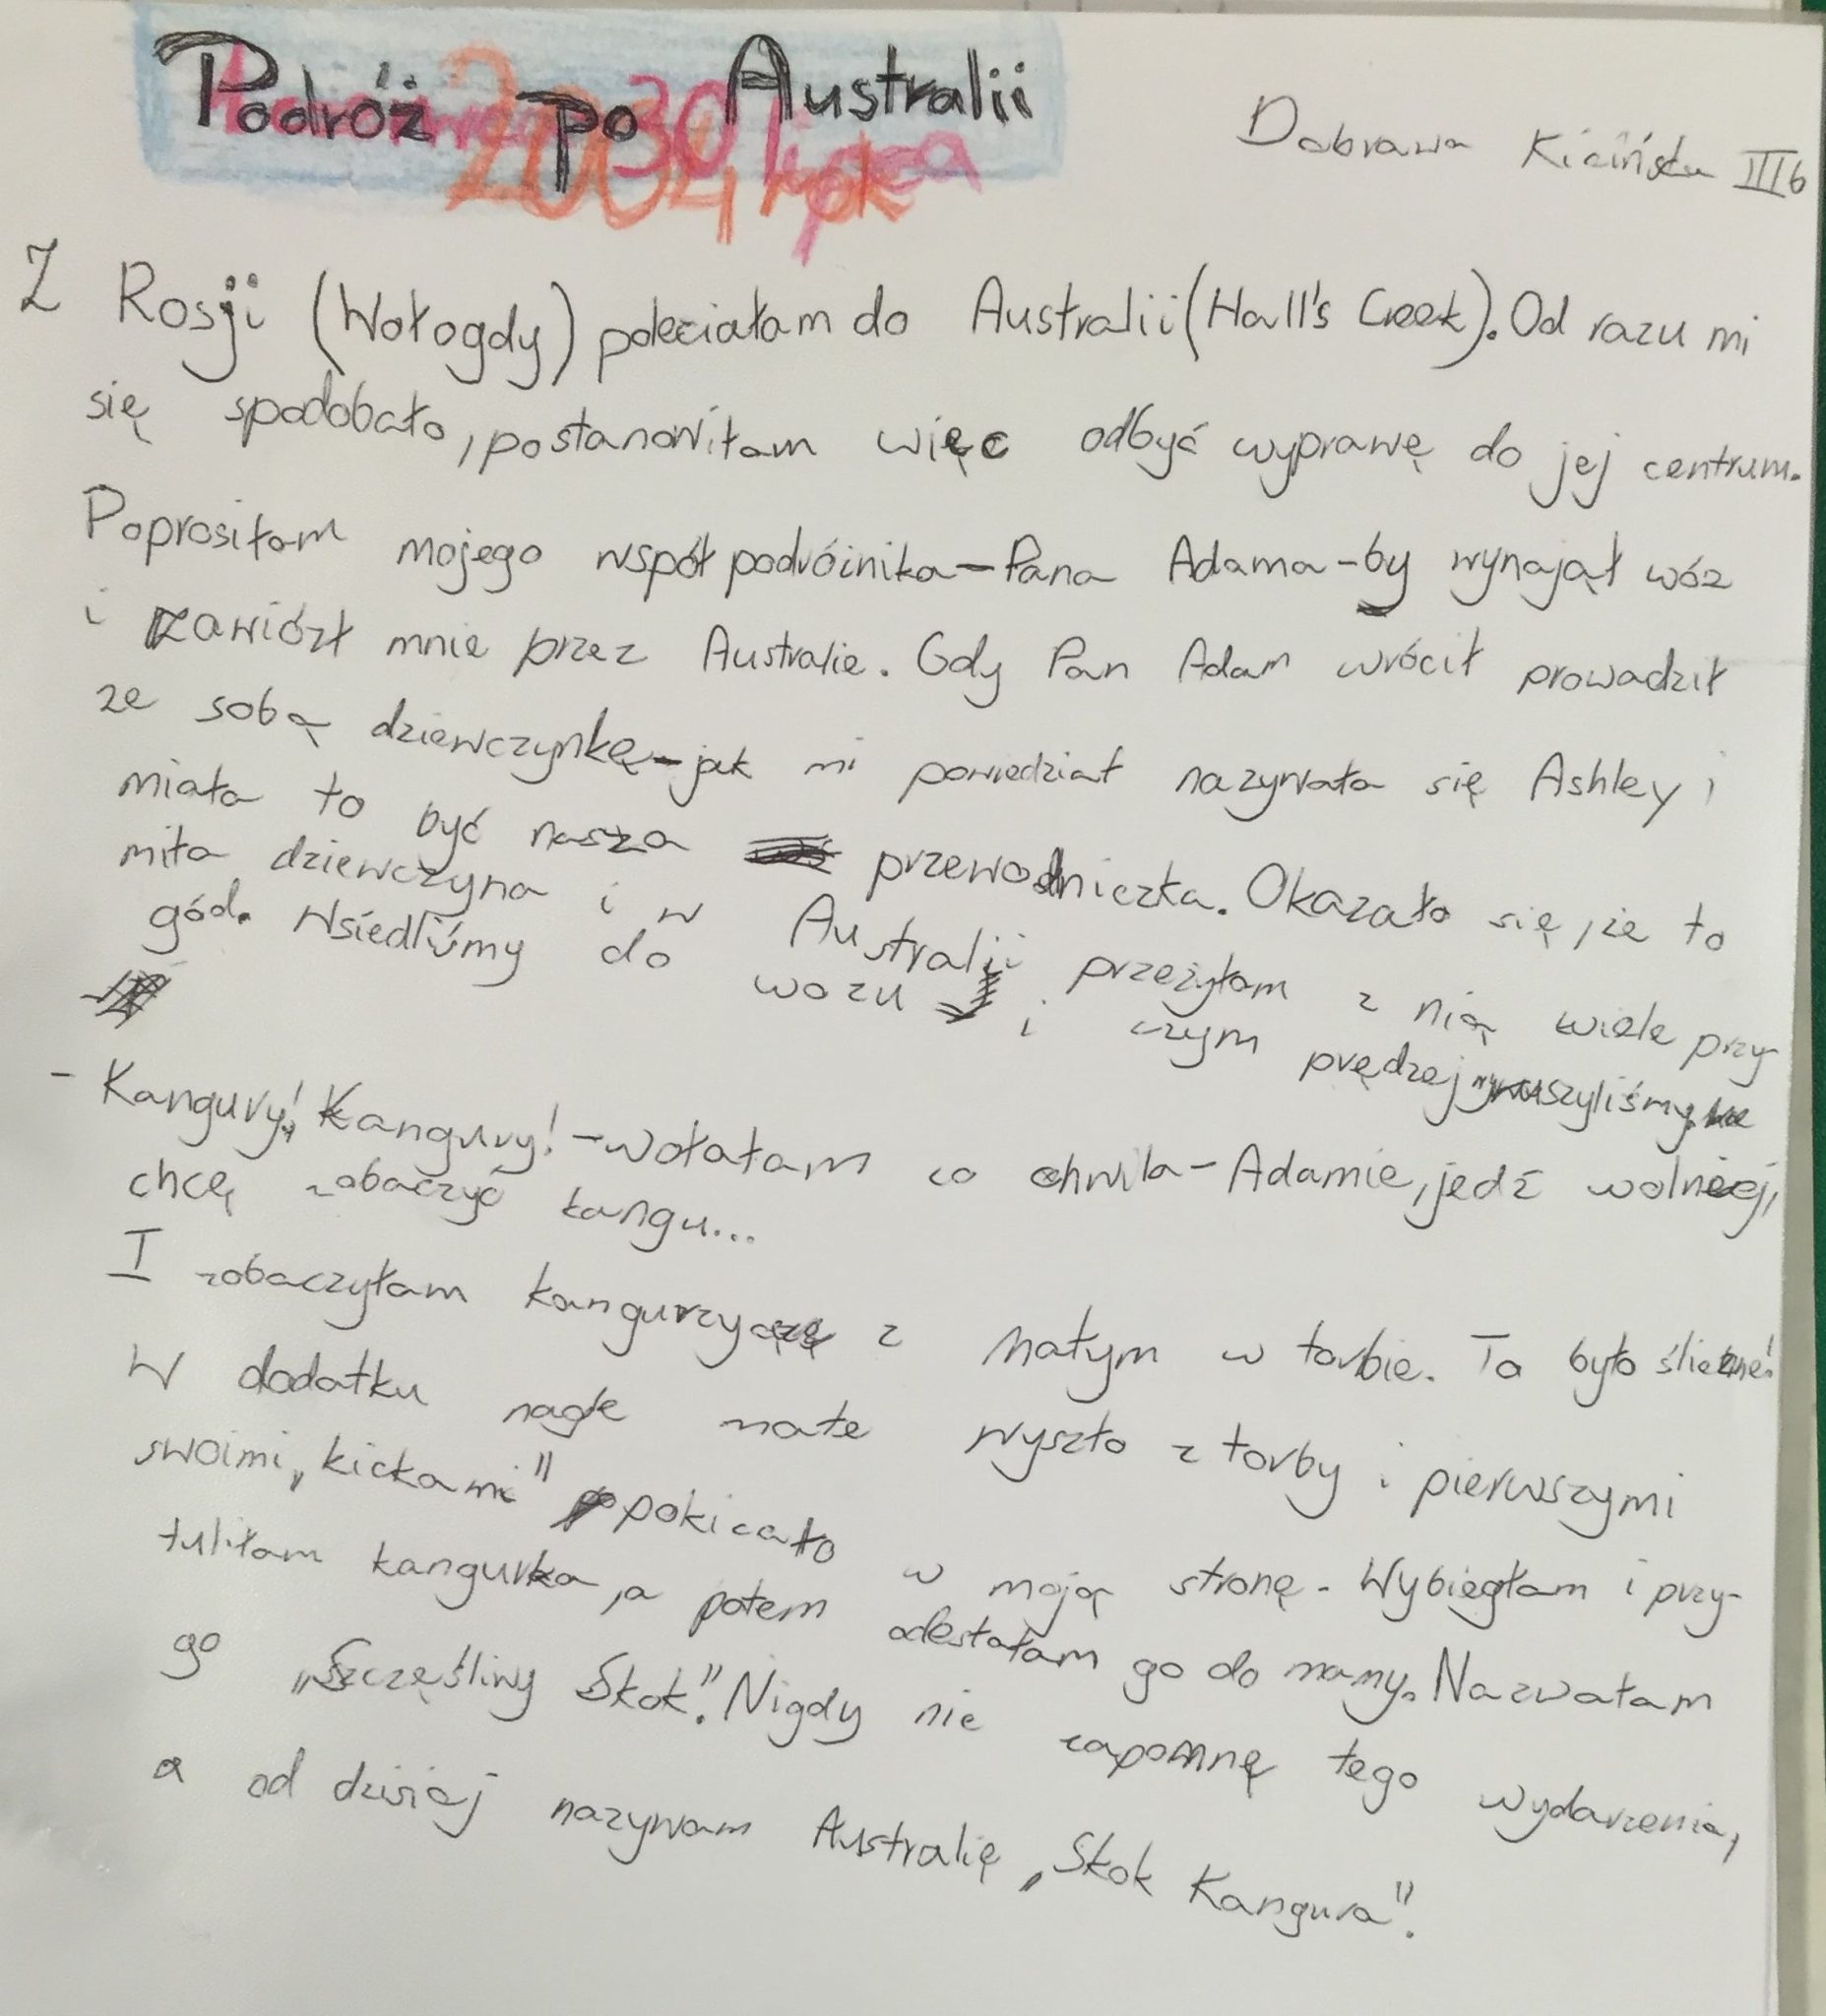 Podróż po Australii
30 lipca
2004 rok
Dobrawa Kicińska III6
Z Rosji (Wołogdy) poleciałam do Australii (Hall's Creek). Od razu mi
się spodobało, postanowiłam więc odbyć wyprawę do jej centrum.
Poprosiłam mojego współpodróżnika - Pana Adama - by wynajął wóz
i zawiózł mnie przez Australie. Gdy Pan Adam wrócił prowadził
ze sobą dziewczynkę - jak mi powiedział nazywała się Ashley i
miała to być nasza przewodniczka. Okazało się, że to
miła dziewczyna i w Australii przeżyłam z nią wiele przy-
gód. Wsiedliśmy do wozu i czym prędzej wyruszyliśmy.
- Kangury! Kangury! - wołałam co chwila - Adamie, jedź wolniej,
chcę zobaczyć kangu...
I zobaczyłam kangurzycę z małym w torbie. To było śliczne!
W dodatku nagle małe wyszło z torby i pierwszymi
swoimi „kickami" pokicało w moją stronę. Wybiegłam i przy-
tuliłam kangurka, a potem odesłałam go do mamy. Nazwałam
go „Szczęśliwy Skok". Nigdy nie zapomnę tego wydarzenia,
a od dzisiaj nazywam Australię „Skok Kangura".